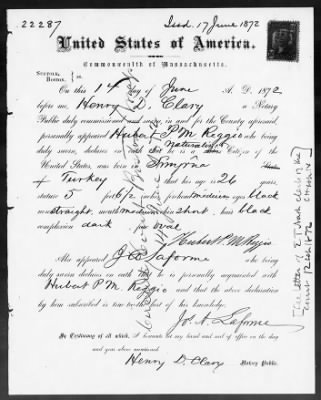 22287
Issd. 17 June 1872
United States of America.
Commonwealth of Massachusetts.
SUFFOLK,
BOSTON. ss.
On this 14 day of June A. D. 1872
before me, Henry D. Clary a Notary
Public duly commissioned and sworn in and for the County aforesaid,
personally appeared Hubert P M Reggio who being
duly sworn, declares that he is a Naturalized Citizen of the
United States, was born in Smyrna
of Turkey and that his age is 26 years,
stature 5 feet 6 1/2 inches, forehead medium eyes black
nose straight, mouth medium chin short, hair black
complexion dark face oval
Hubert P M Reggio
Also appeared J A Laforme who being
duly sworn declares on oath that he is personally acquainted with
Hubert P. M. Reggio and that the above declaration
by him subscribed is true to the best of his knowledge.
Jos. A. Laforme
In Testimony of all which, I hereunto set my hand and seal of office on the day
and year above mentioned.
Henry D. Clary Notary Public.
See letter of
clerk of the
court